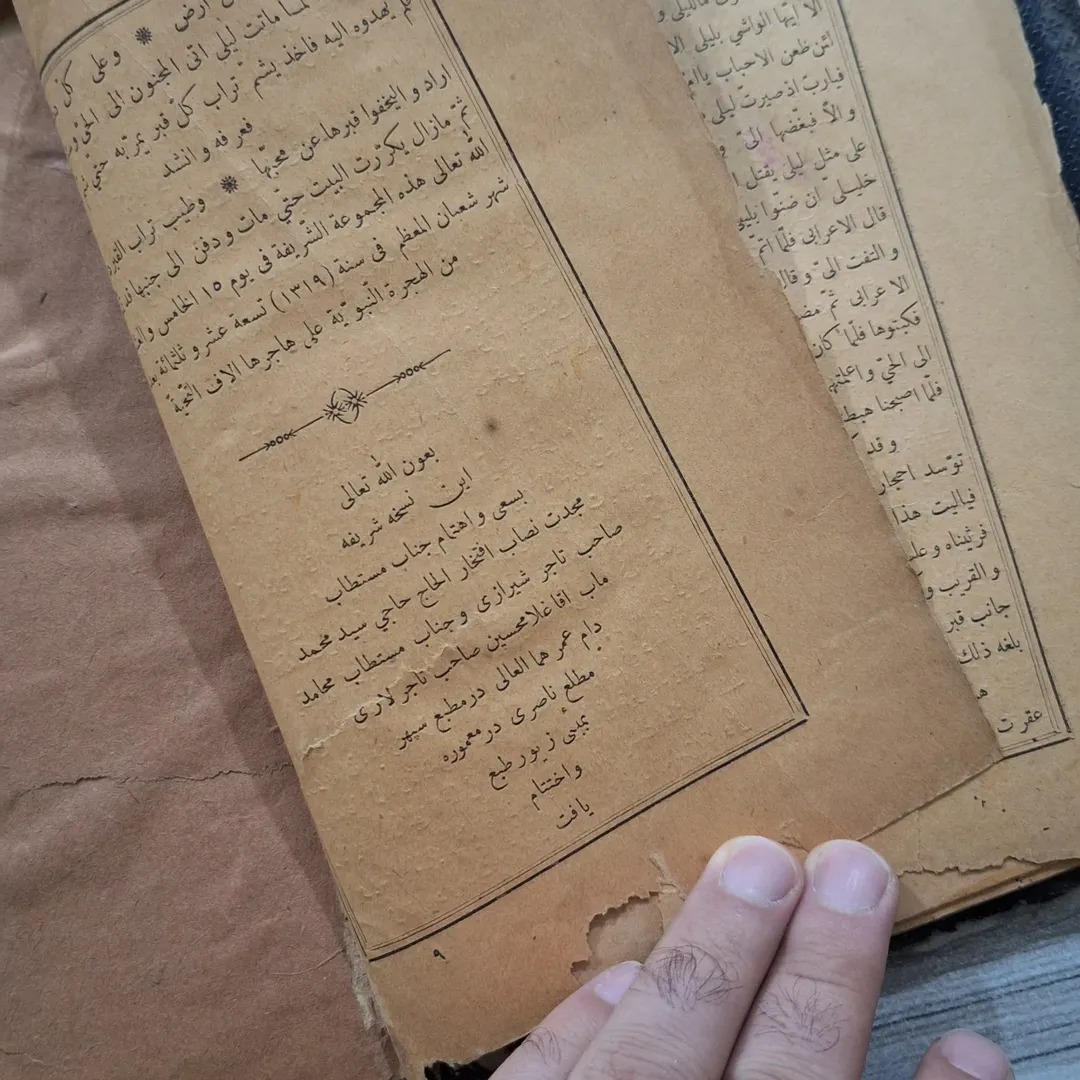 ارض ❋ وعلى كل
لما ماتت ليلى اتى المجنون الى الحى و
يهدوه اليه فاخذ يشم تراب كلّ قبر يمرّ به حتّى
فعرفه و انشد
اراد و اليخفوا قبرها عن محبّها ❋ وطيب تراب القبر
ثمّ مازال يكرّرت البيت حتّى مات و دفن الى جنبها
اللّه تعالى هذه المجموعة الشّريفة فى يوم ١٥ الخامس و
شهر شعبان المعظم فى سنة (١٣١٩) تسعة عشر و ثلثمائة
من الهجرة النّبويّة على هاجرها الاف التّحيّة
بعون اللّه تعالى
اين نسخه شريفه
بسعى و اهتمام جناب مستطاب
مجدت نصاب افتخار الحاج حاجي سيد محمد
صاحب تاجر شيرازى و جناب مستطاب محامد
ماب اقا غلامحسين صاحب تاجر لارى
دام عمر هما العالى در مطبع سپهر
مطلع ناصرى در معموره
بمبئى زيور طبع
و اختتام
يافت
٩
الا ايّها الواشي بليلى الا
لئن ظعن الاحباب يا
فيارب اذ صيرت ليلى
و الّا فبغضها الىّ و
على مثل ليلى يقتل
خليلىّ ان ضنّوا بليلى
قال الاعرابى فلمّا اتم
و التفت الىّ و قال
الاعرابى ثمّ مض
فكبتوها فلمّا كان
الى الحىّ و اعلمتهم
فلمّا اصبحنا هبط
و قد
توّسد احجار
فياليت هذا
فرثيناه و علا
و القريب و
جانب قبر
بلغه ذلك
عقرت